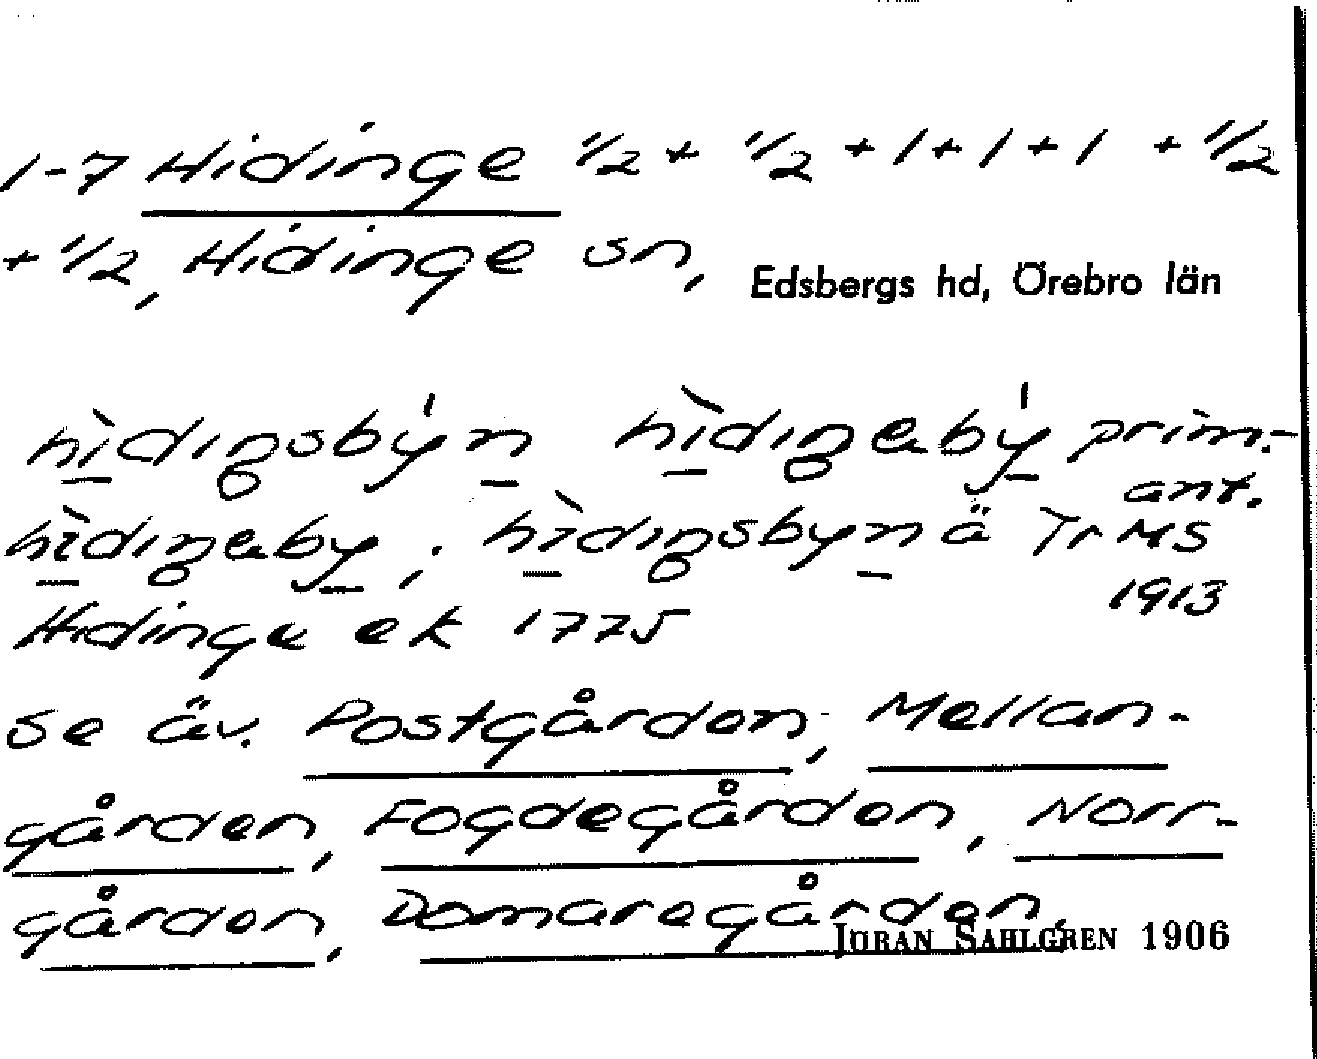 1-7 Hidinge 1/2 + 1/2 + 1 + 1 + 1 + 1/2
+ 1/2, Hidinge sn, Edsbergs hd, Örebro län
hìdıŋsbýn hìdıŋəbý prim.-
ant.
hìdıŋəby, hìdıŋsbyn ä Tr MS
1913
Hidinge ek 1775
se äv. Postgården, Mellan-
gården, Fogdegården, Norr-
gården, Domaregården,
JÖRAN SAHLGREN 1906